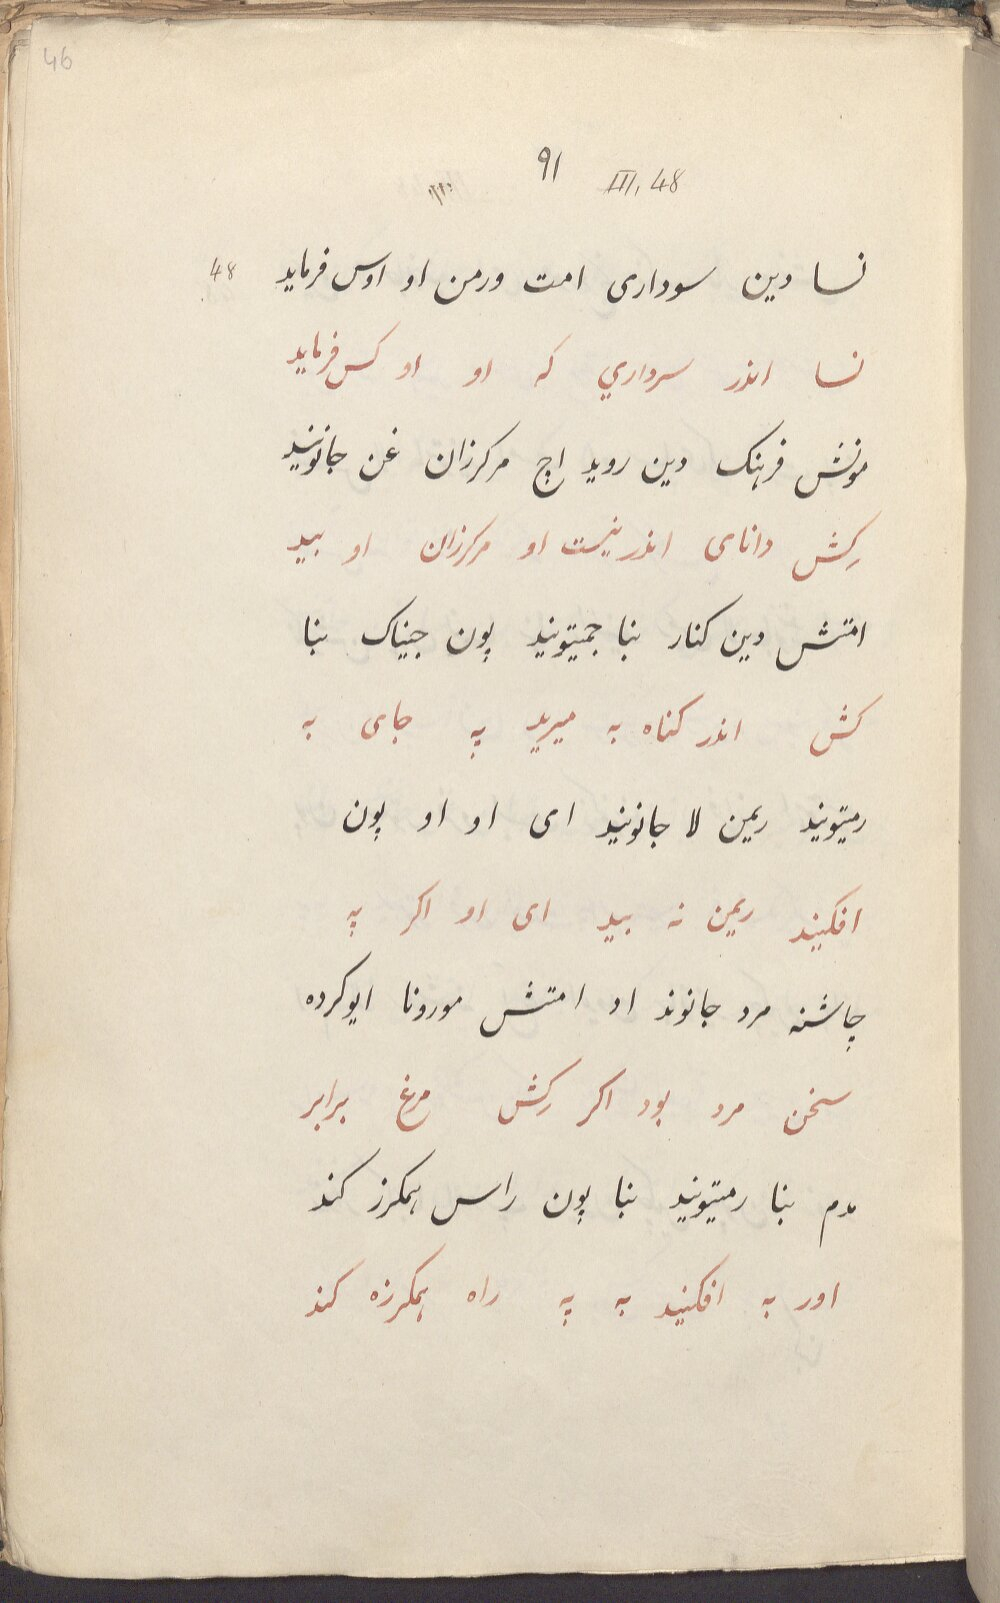 46
91 III, 48
نسا دین سوداری امت ورمن او اوس فرماید 48
نسا اندر سرداري که او او کس فرماید
مونش فرهنک دین روید اج مرکرزان غن جانونید
کِش دانای اندر نیست او مرکرزان او بید
امتش دین کنار بنا جمیتونید پون جیناک بنا
کش اندر کناه به میرید په جای به
رمیتونید ریمن لا جانونید ای او او پون
افکنید ریمن نه بید ای او اکر په
چاشنه مرد جانوند اد امتش مورونا ایوکرده
سخن مرد بود اکر کِش مرغ برابر
مدم بنا رمیتونید بنا پون راس همکرز کند
اور به افکنید به په راه همکرزه کند